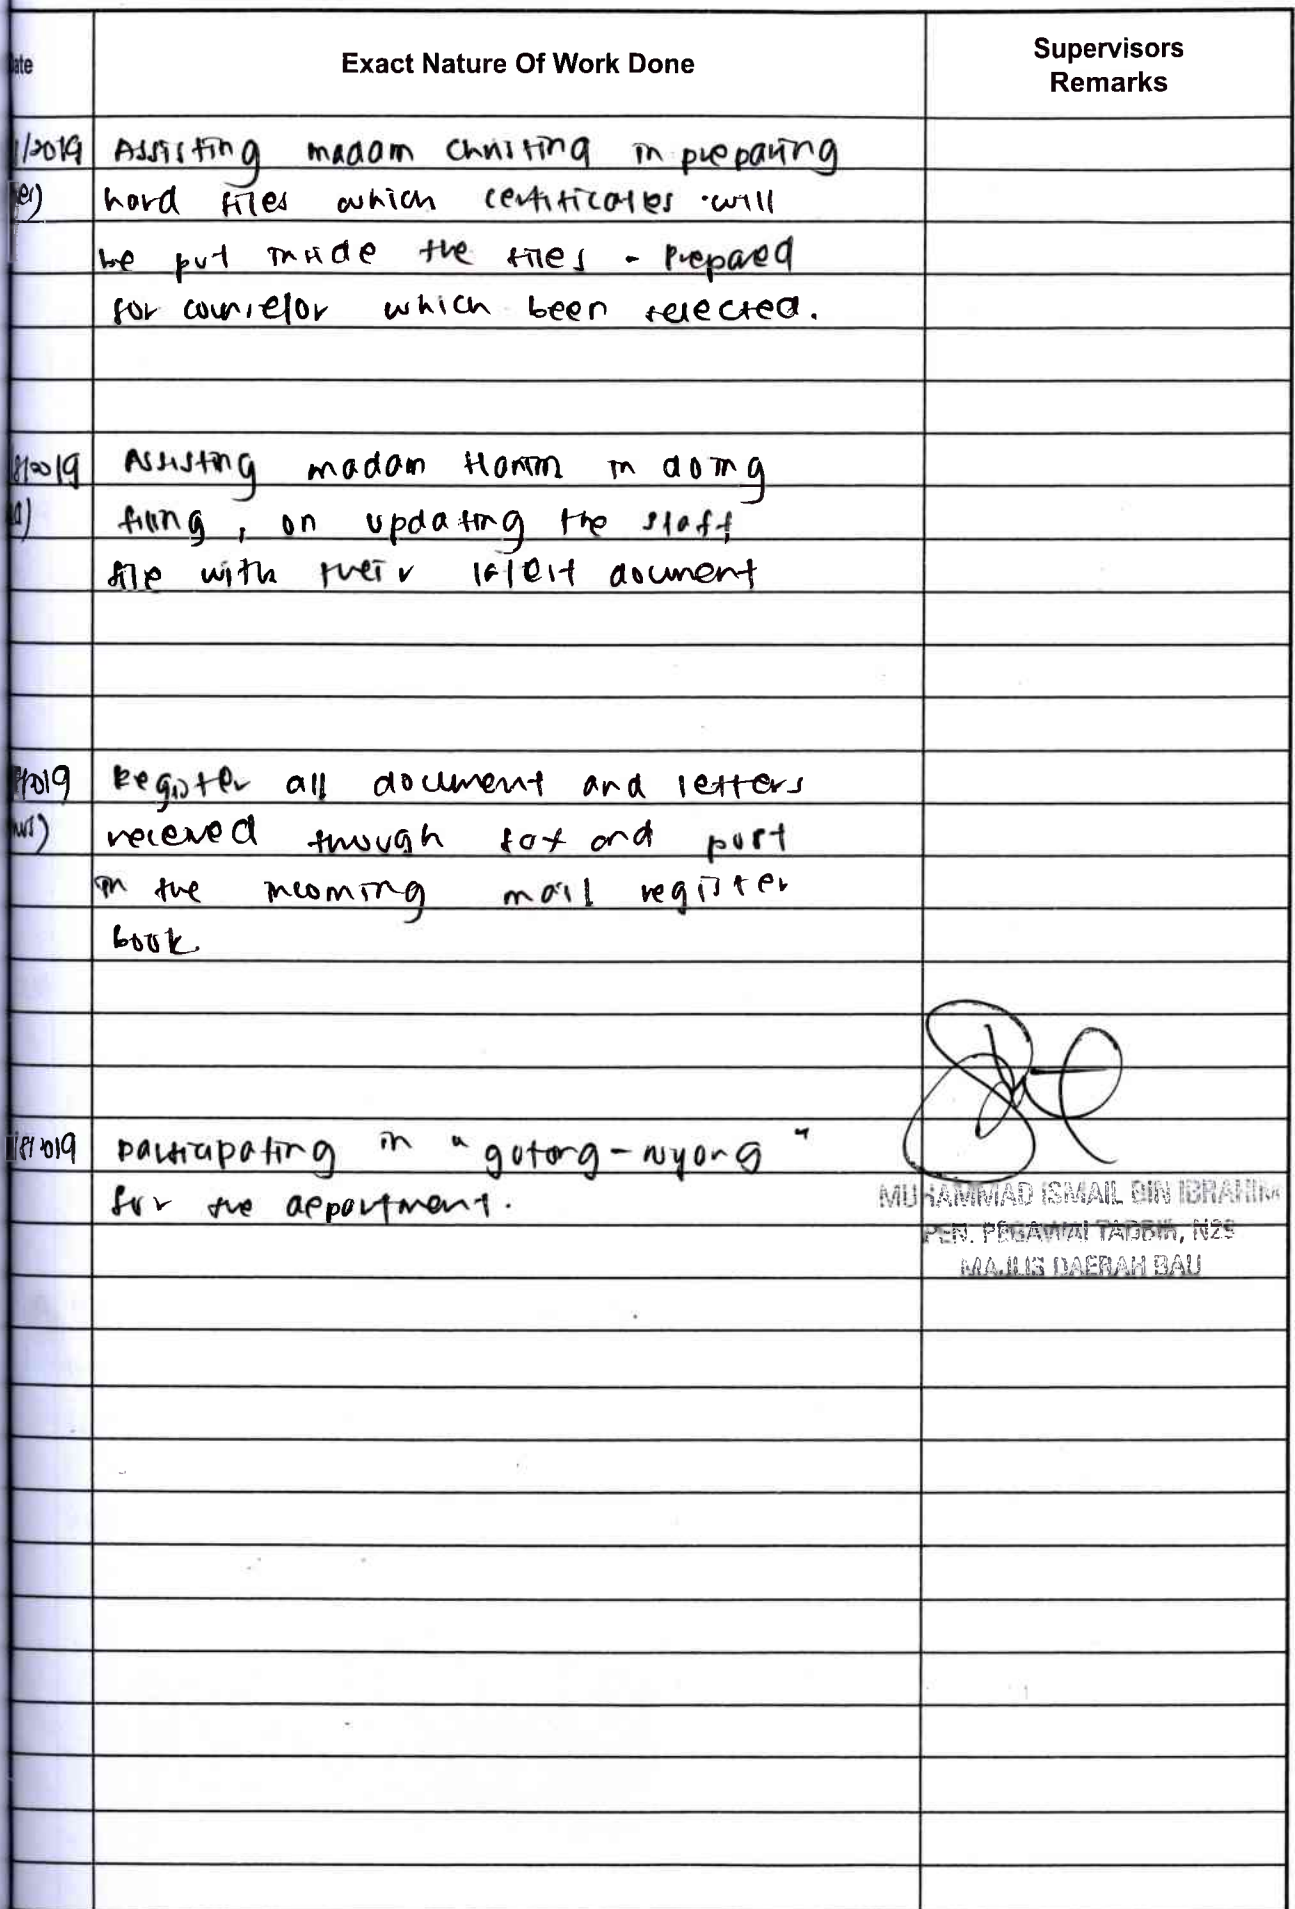 Date Exact Nature Of Work Done Supervisors Remarks
/2019 Assisting madam Christing in preparing
hard files which certificates will
be put inside the files - Prepared
for counselor which been selected.
8/2019 Assisting madam in doing
filing, on updating the staff
file with their latest document
2019 Register all document and letters
received through fax and post
in the incoming mail register
book.
/8/2019 participating in "gotong-royong"
for the department.
MUHAMMAD ISMAIL BIN IBRAHIM
PEN. PEGAWAI TADBIR, N29
MAJLIS DAERAH BAU